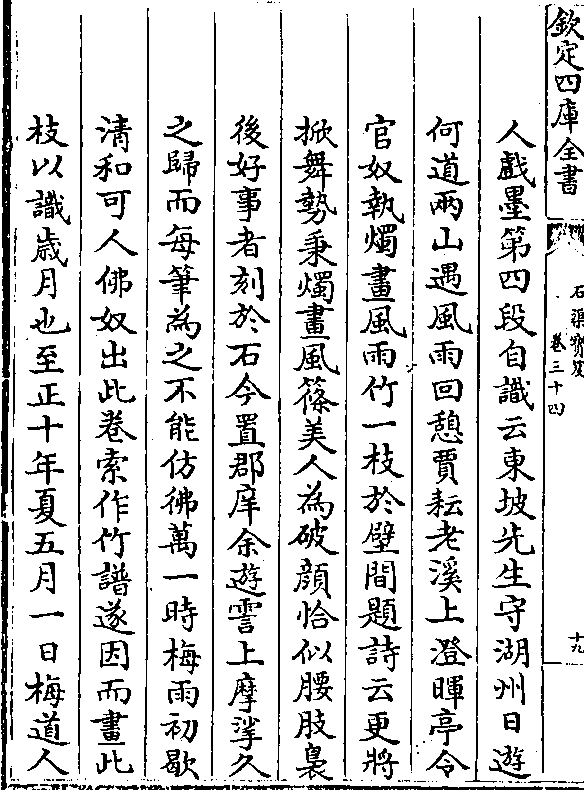 欽定四庫全書
石渠寳笈
卷三十四
十九
人戲墨第四段自識云東坡先生守湖州日遊
何道兩山遇風雨回憩賈耘老溪上澄暉亭令
官奴執燭畫風雨竹一枝於壁間題詩云更將
掀舞勢秉燭畫風篠美人為破顔恰似腰肢裊
後好事者刻於石今置郡庠余遊霅上摩挲久
之歸而每筆為之不能仿彿萬一時梅雨初歇
清和可人佛奴出此卷索作竹譜遂因而畫此
枝以識歳月也至正十年夏五月一日梅道人